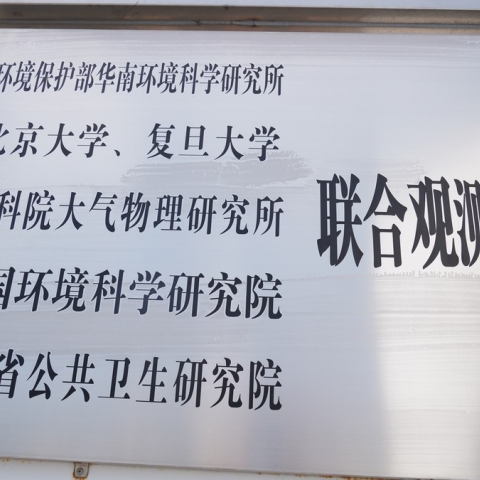 环境保护部华南环境科学研究所
北京大学、复旦大学
科院大气物理研究所
国环境科学研究院
省公共卫生研究院
联合观测